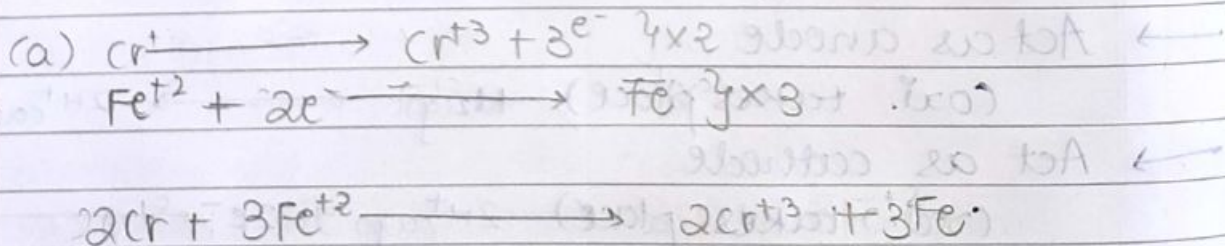 (a) Cr⁺ ⟶ Cr⁺³ + 3e⁻ }×2
Fe⁺² + 2e⁻ ⟶ Fe }×3
2Cr + 3Fe⁺² ⟶ 2Cr⁺³ + 3Fe.